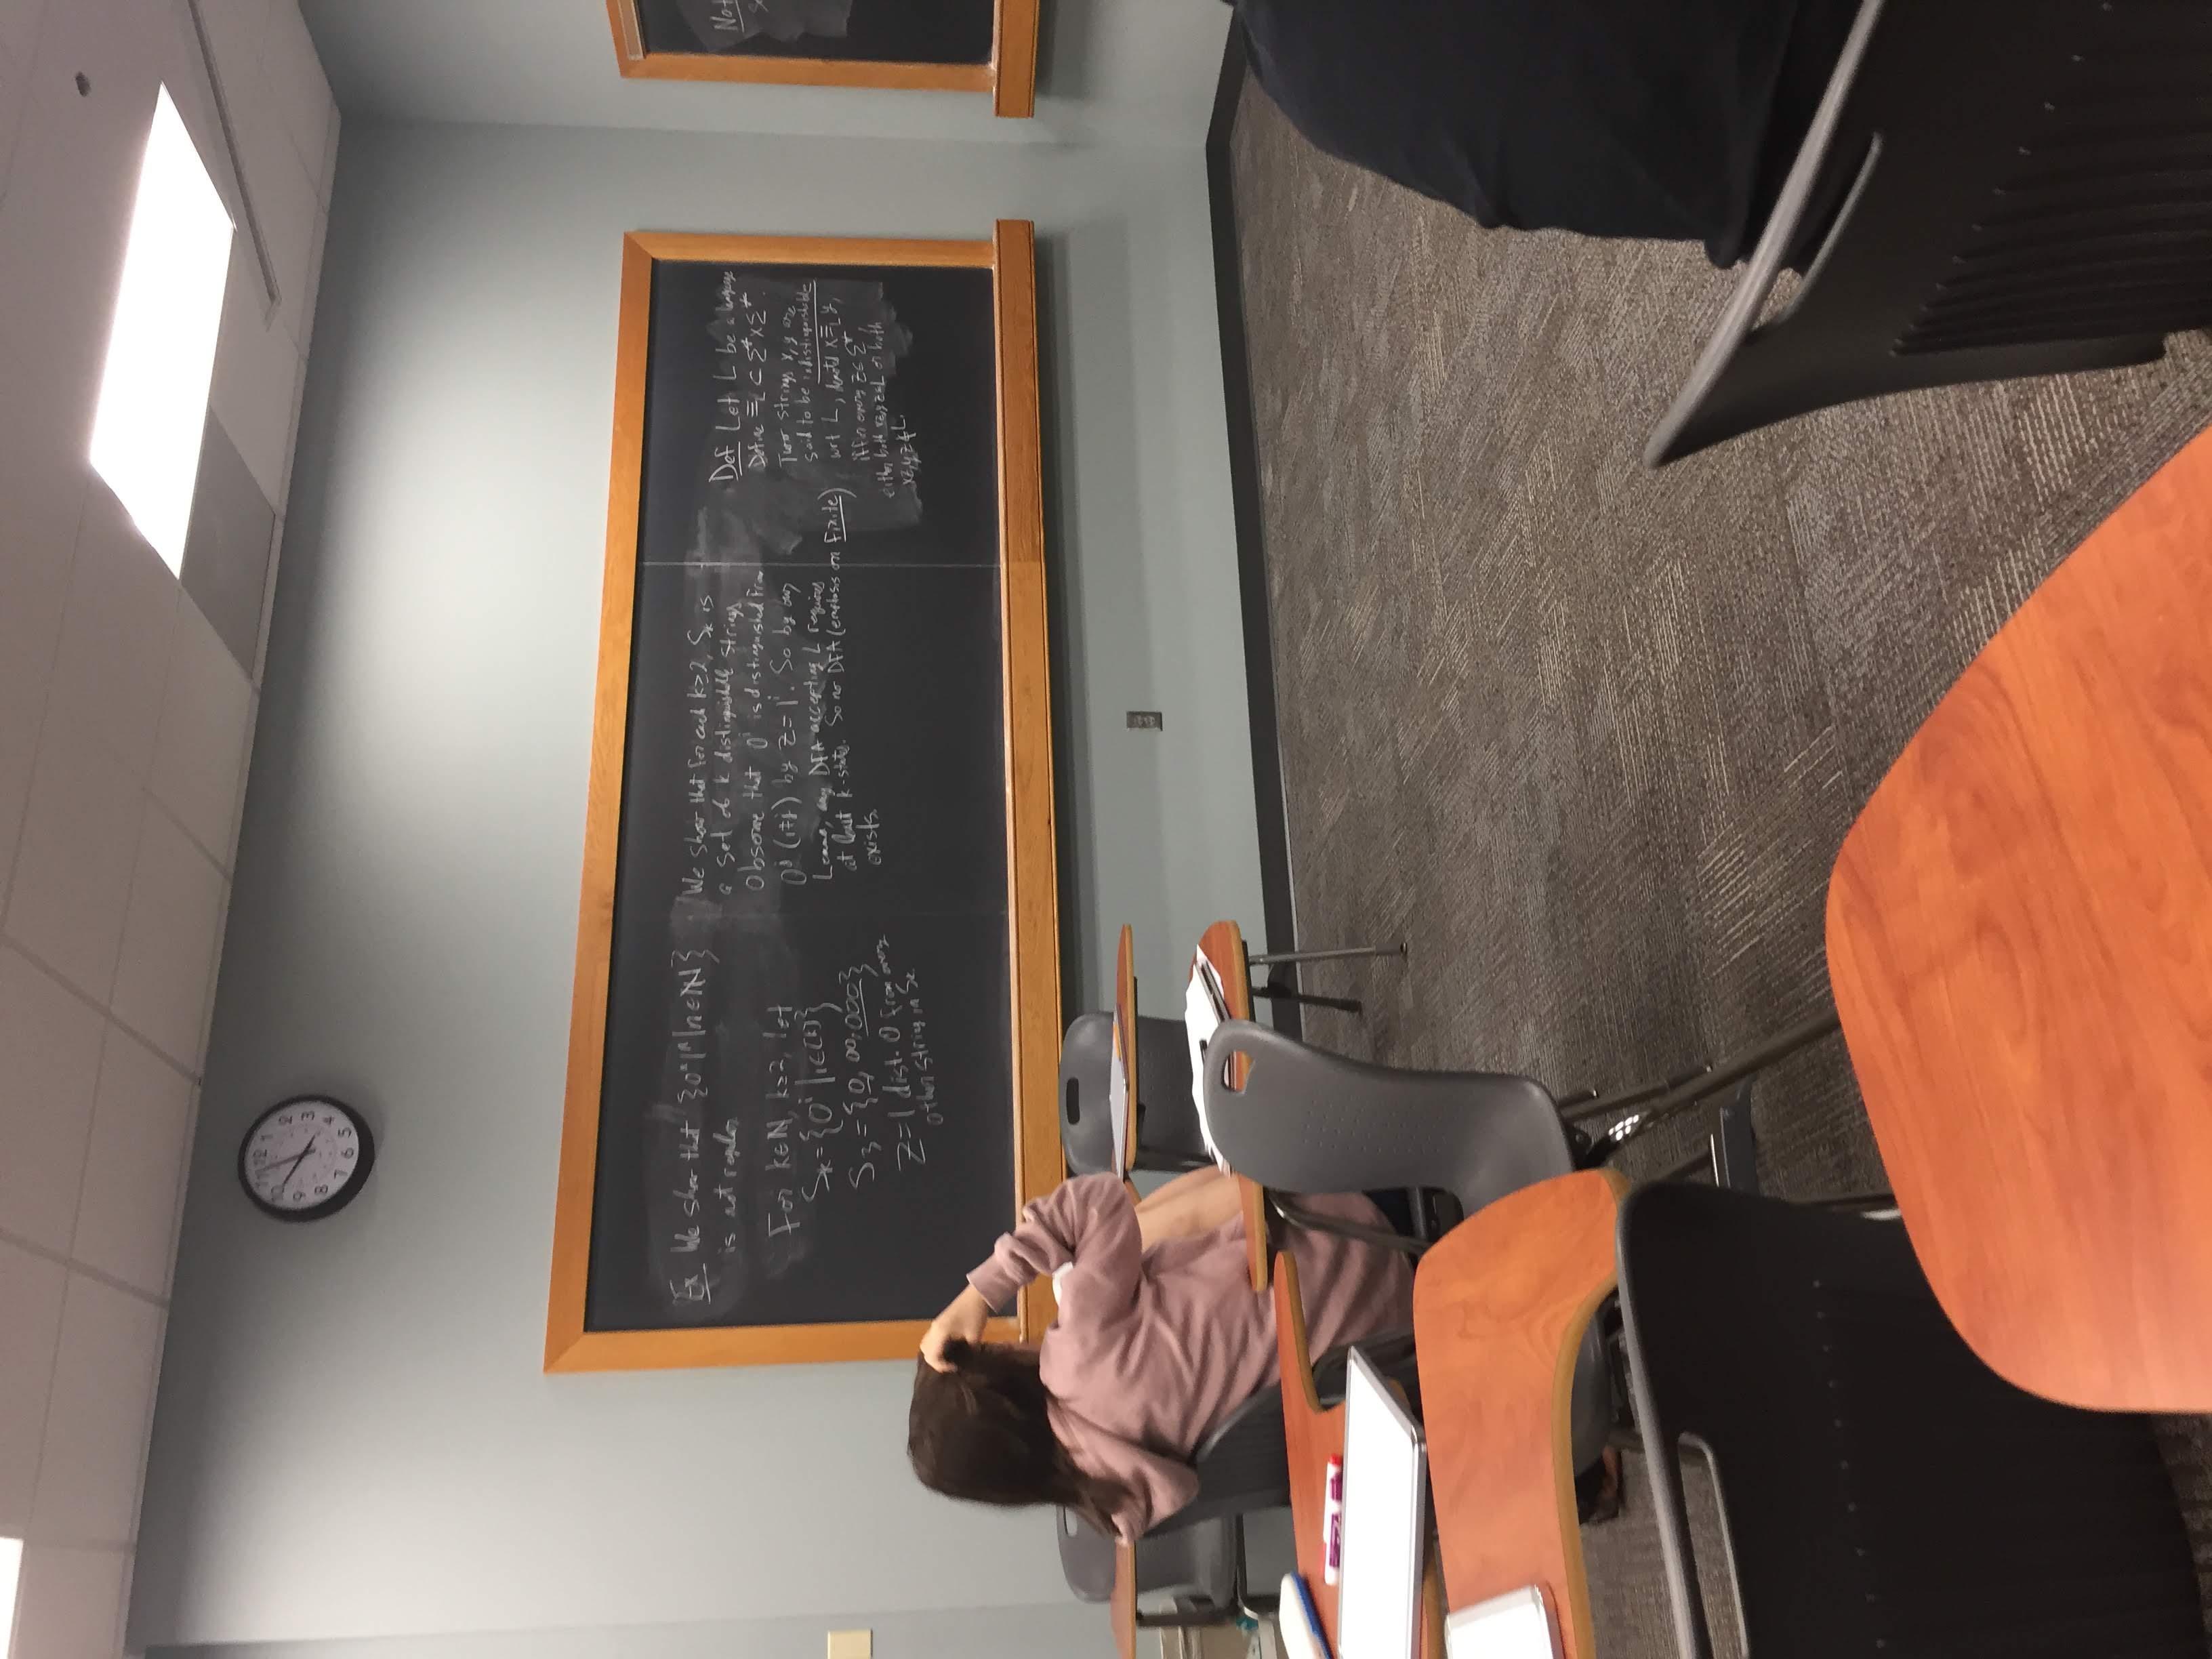 11 12 1
10 2
9 3
8 4
7 6 5
Ex We show that {0ⁿ1ⁿ | n ∈ ℕ}
is not regular
For k∈ℕ, k≥2, let
Sₖ = {0ⁱ | i∈[k]}
S₃ = {0, 00, 000}
z=1 dist. 0 from every
other string in Sₖ.
We show that for each k≥2, Sₖ is
a set of k distinguishable strings
Observe that 0ⁱ is distinguished from
0ʲ (i≠j) by z=1ⁱ. So by our
Lemma, any DFA accepting L requires
at least k-states. So no DFA (emphasis on finite)
exists.
Def Let L be a language
Define ≡_L ⊂ Σ* × Σ*.
Two strings x, y are
said to be indistinguishable
wrt L, denoted x≡_L y,
if for every z∈Σ*,
either both xz, yz∈L or both
xz, yz∉L.
Not